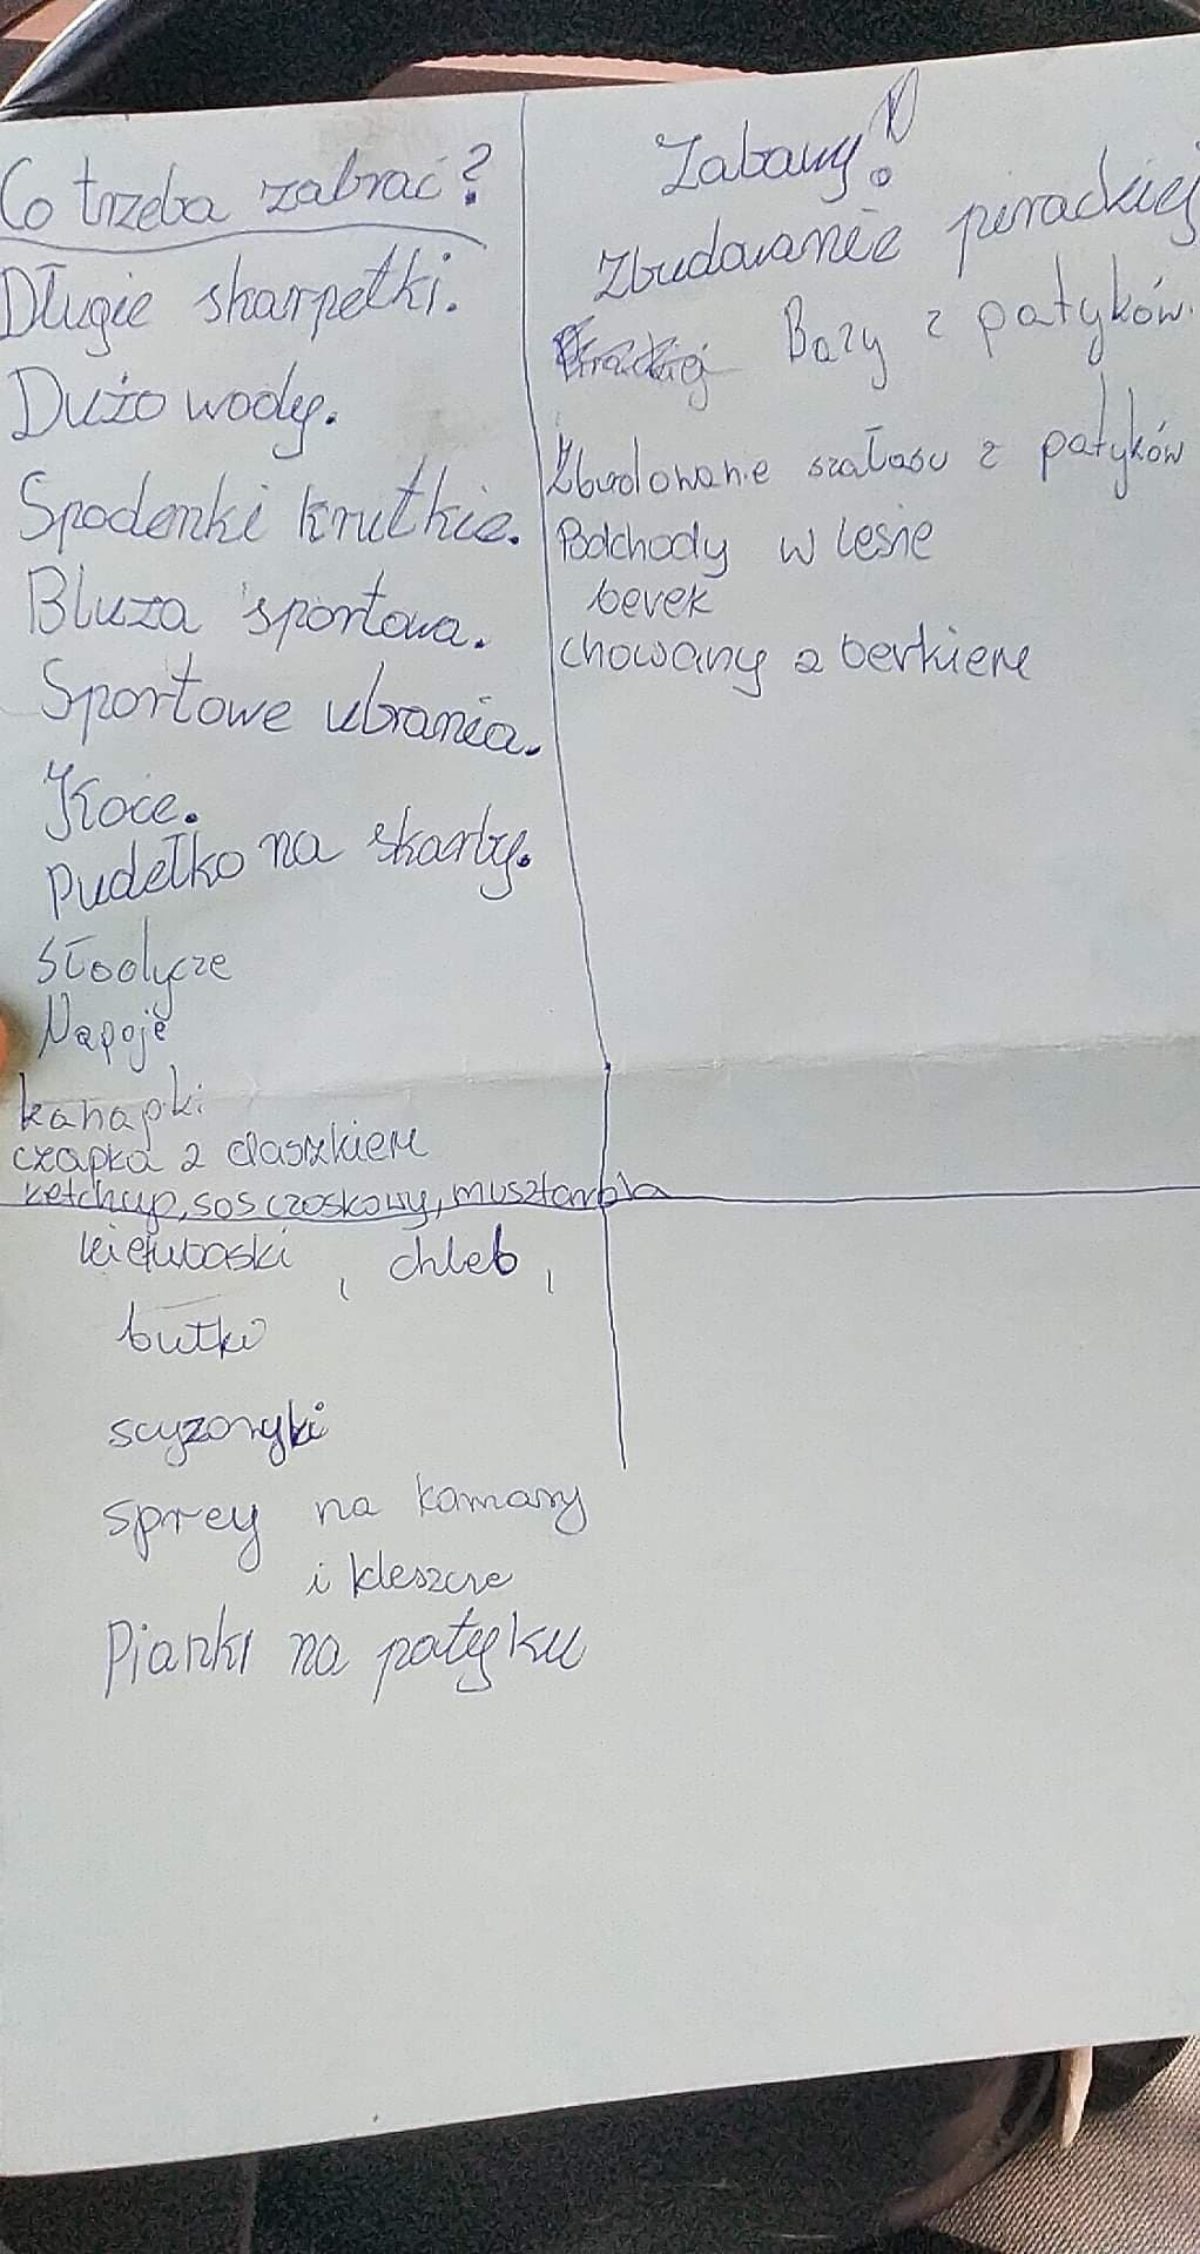 Co trzeba zabrać?
Długie skarpetki.
Dużo wody.
Spodenki krutkie.
Bluza sportowa.
Sportowe ubrania.
Koce.
Pudełko na skarby.
Słodycze
Napoje
kanapki
czapka z daszkiem
ketchup, sos czoskowy, musztarbda
kiełbaski, chleb,
bułki
scyzoryki
sprey na komary
i kleszcze
Pianki na patyku
Zabawy!
Zbudowanie pirackiej
Bazy z patyków.
Zbudowanie szałasu z patyków
Podchody w lesie
berek
chowany z berkiem